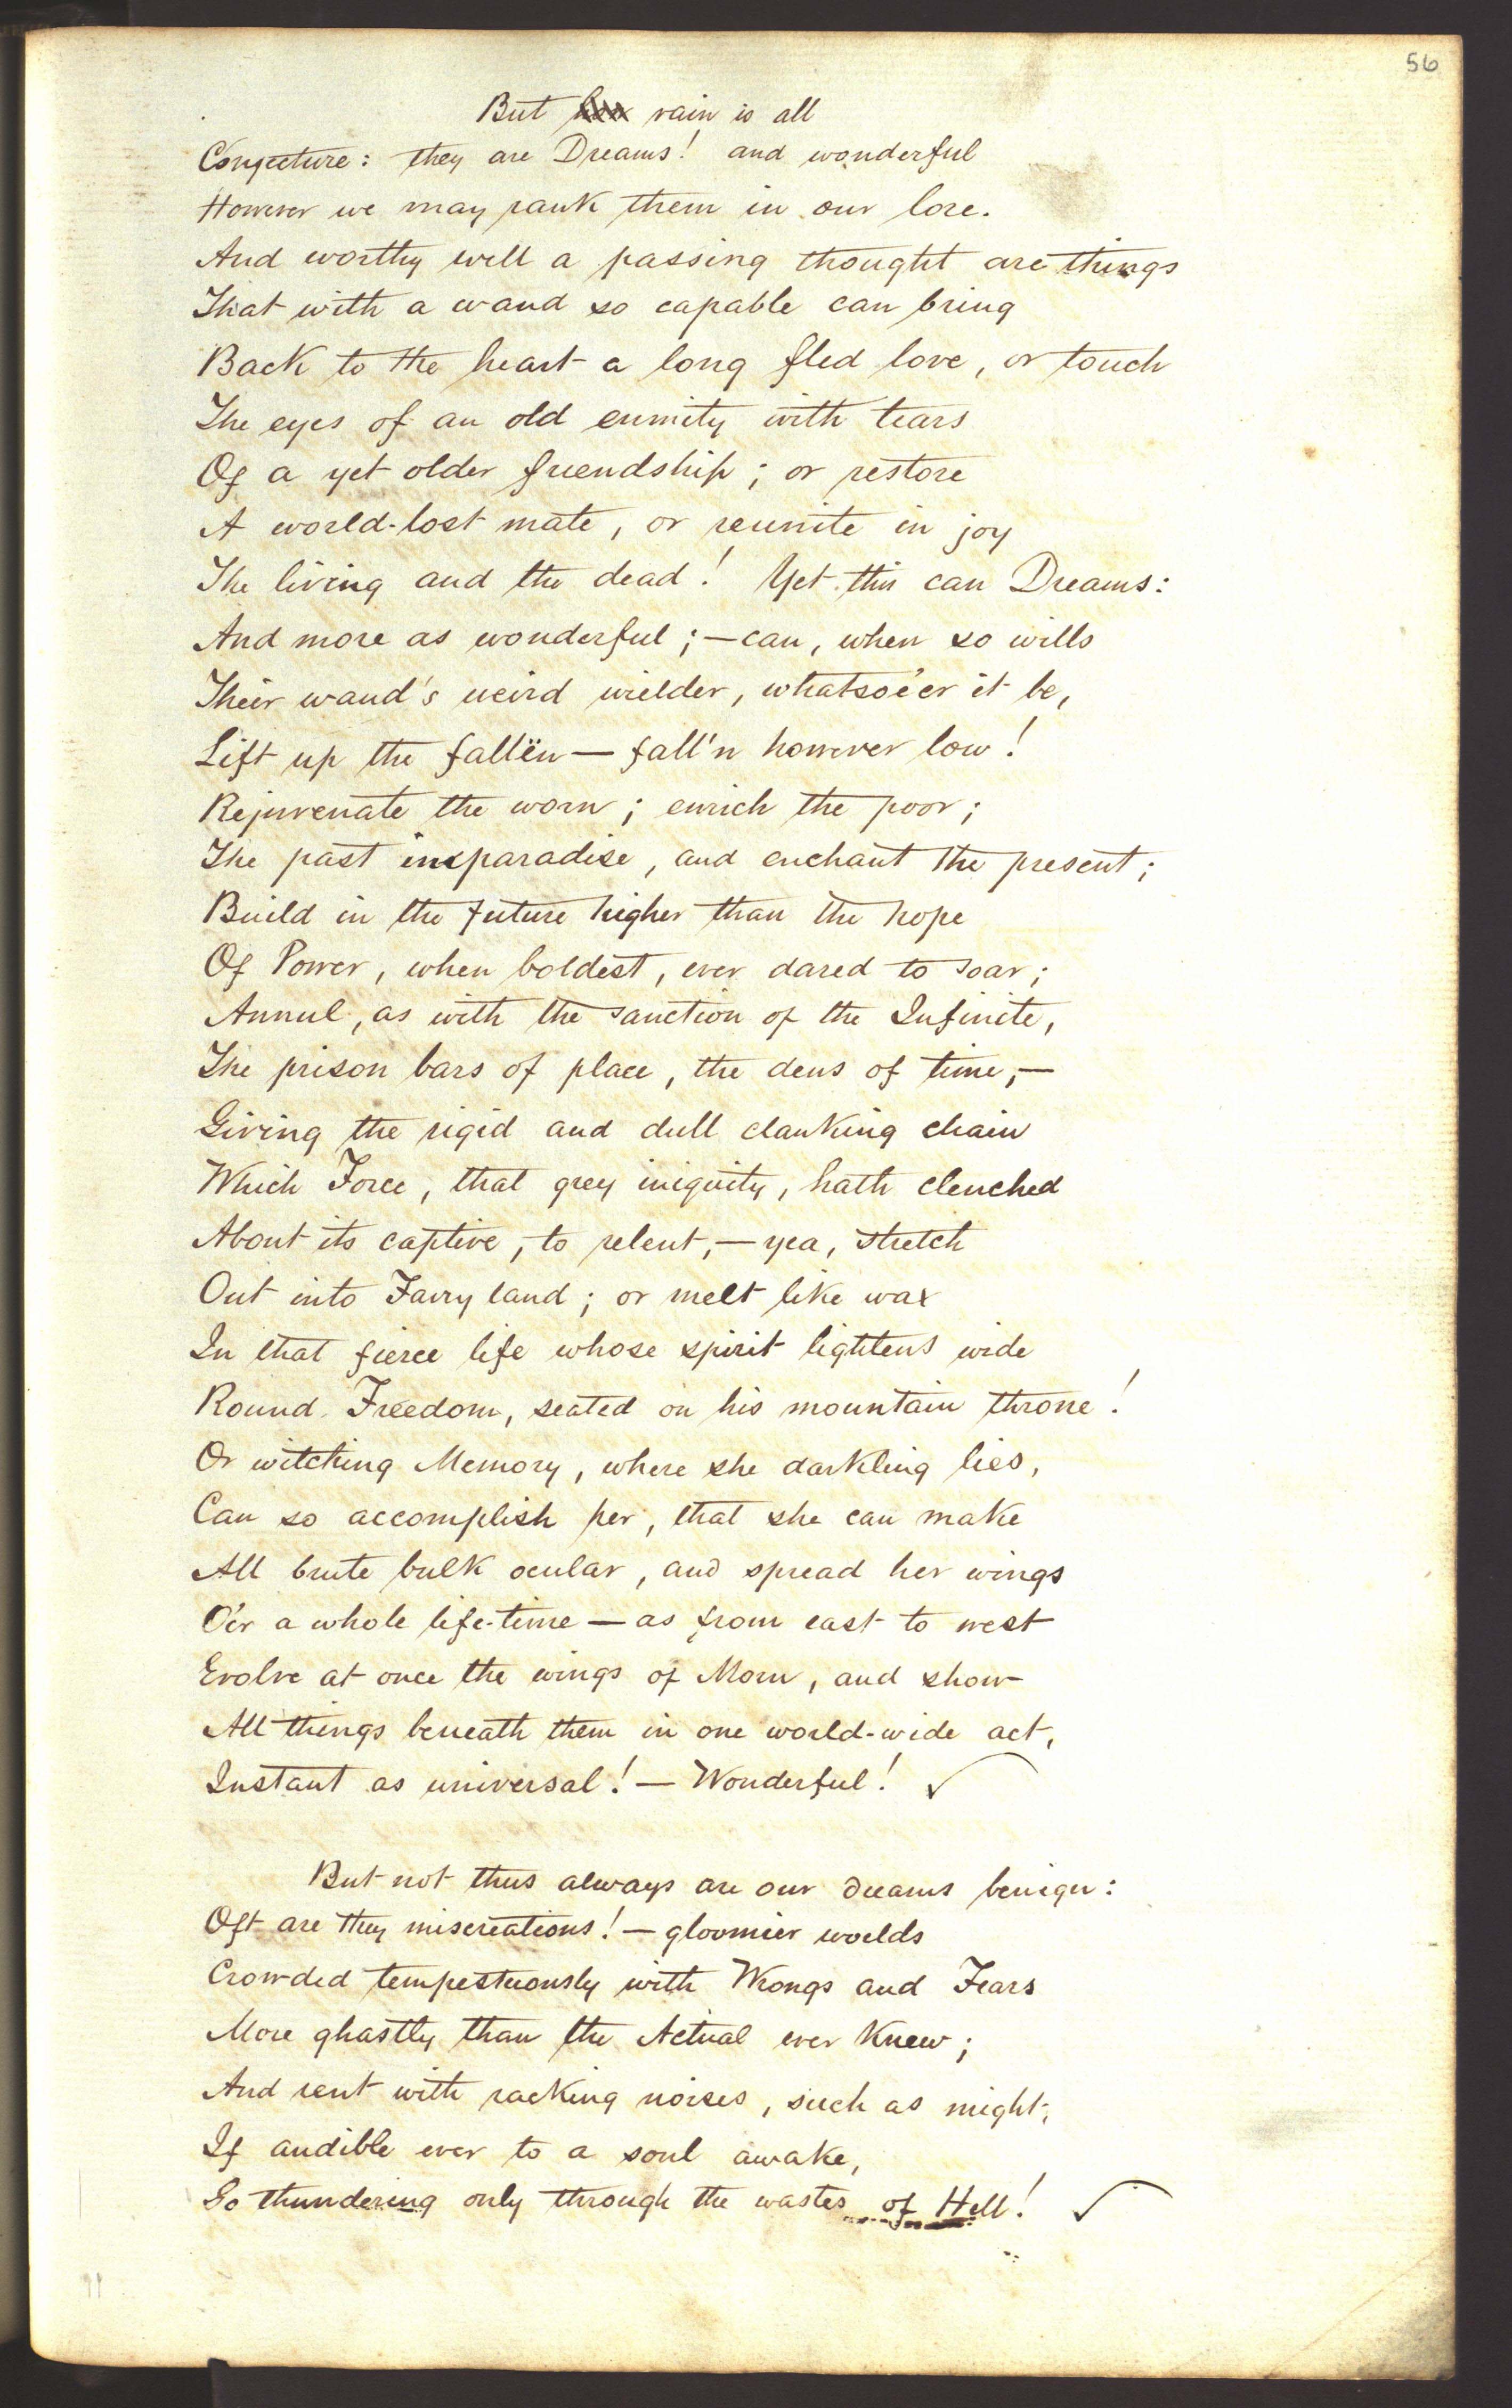 56
But vain is all
Conjecture: they are Dreams! and wonderful
However we may rank them in our lore.
And worthy well a passing thought are things
That with a wand so capable can bring
Back to the heart a long fled love, or touch
The eyes of an old enmity with tears
Of a yet older friendship; or restore
A world-lost mate, or reunite in joy
The living and the dead! Yet this can Dreams:
And more as wonderful;—can, when so wills
Their wand's weird wielder, whatsoe'er it be,
Lift up the fallën—fall'n however low!
Rejuvenate the worn; enrich the poor;
The past imparadise, and enchant the present;
Build in the future higher than the hope
Of Power, when boldest, ever dared to soar;
Annul, as with the sanction of the Infinite,
The prison bars of place, the dens of time,—
Giving the rigid and dull clanking chain
Which Force, that grey iniquity, hath clenched
About its captive, to relent,—yea, stretch
Out into Fairy land; or melt like wax
In that fierce life whose spirit lightens wide
Round Freedom, seated on his mountain throne!
Or witching Memory, where she darkling lies,
Can so accomplish her, that she can make
All brute bulk ocular, and spread her wings
O'er a whole life-time—as from east to west
Evolve at once the wings of Morn, and show
All things beneath them in one world-wide act,
Instant as universal!—Wonderful! ✓
But not thus always are our dreams benign:
Oft are they miscreations!—gloomier worlds
Crowded tempestuously with Wrongs and Fears
More ghastly than the Actual ever knew;
And rent with racking noises, such as might,
If audible ever to a soul awake,
Go thundering only through the wastes of Hell! ✓